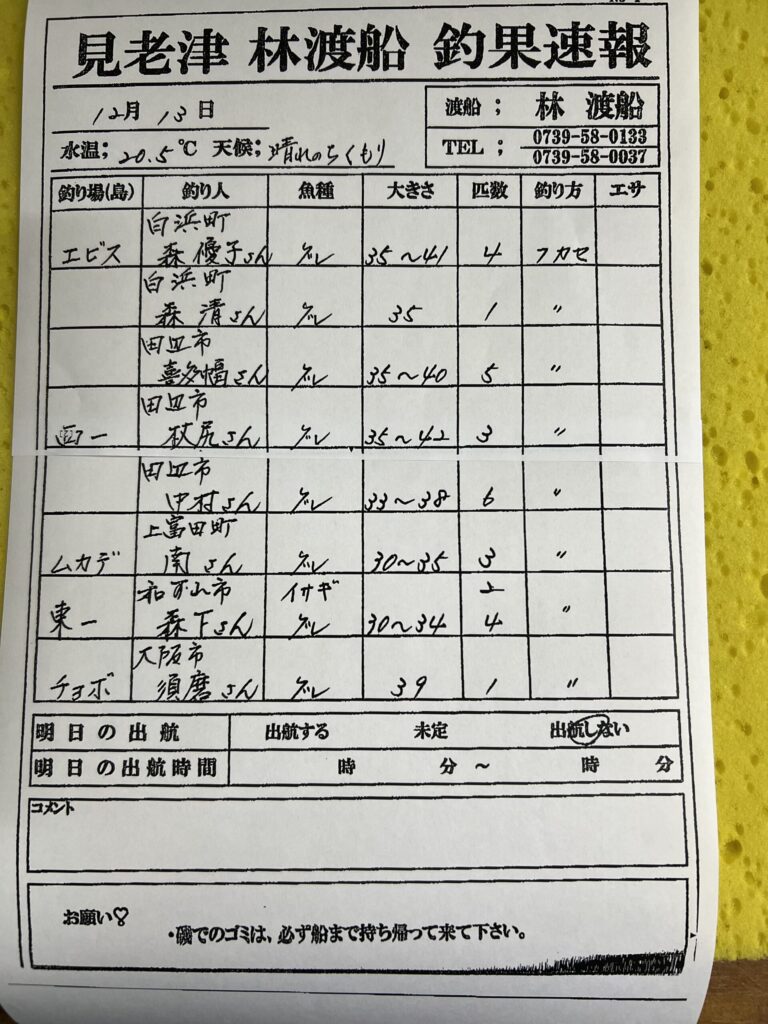 見老津 林渡船 釣果速報
12月 13日
渡船; 林 渡船
水温; 20.5℃ 天候; 晴れのちくもり
TEL; 0739-58-0133
0739-58-0037
釣り場(島) 釣り人 魚種 大きさ 匹数 釣り方 エサ
白浜町
エビス 森 優子さん グレ 35〜41 4 フカセ
白浜町
森 清さん グレ 35 1 〃
田辺市
喜多幅さん グレ 35〜40 5 〃
田辺市
西一 杖尻さん グレ 35〜42 3 〃
田辺市
中村さん グレ 33〜38 6 〃
上富田町
ムカデ 南さん グレ 30〜35 3 〃
和歌山市 イサギ 2
東一 森下さん グレ 30〜34 4 〃
大阪市
チョボ 須磨さん グレ 39 1 〃
明日の出航 出航する 未定 出航しない
明日の出航時間 時 分〜 時 分
コメント
お願い♡
・磯でのゴミは、必ず船まで持ち帰って来て下さい。